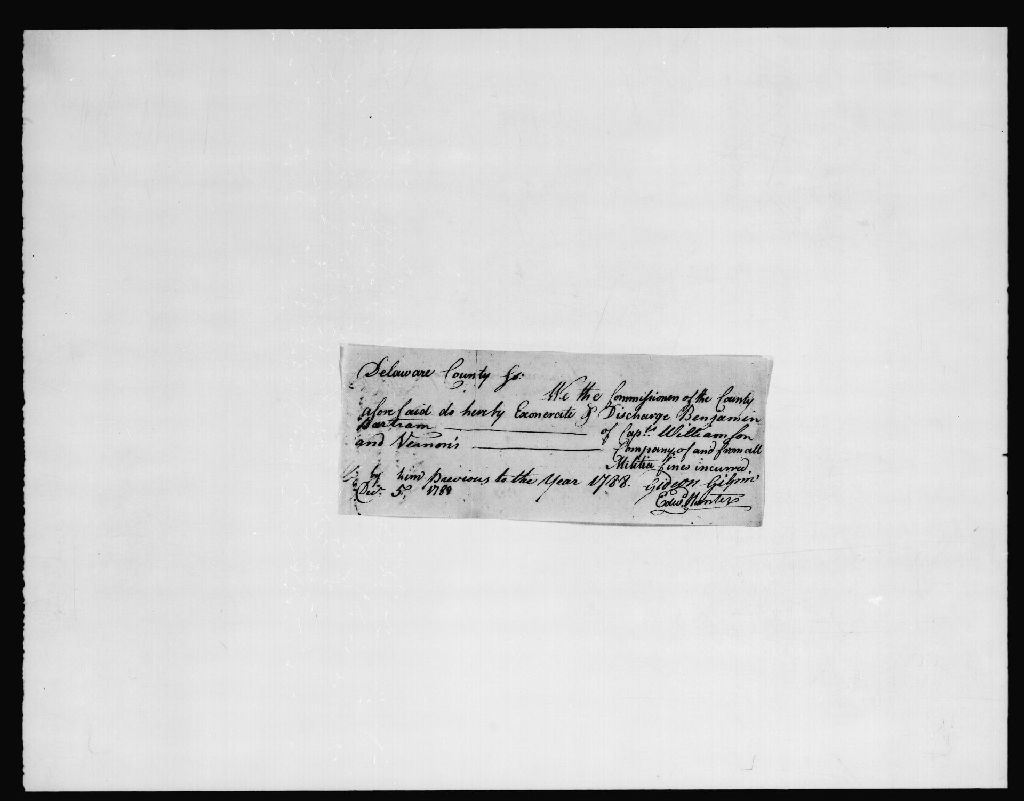 Delaware County Ss.
We the Commissioners of the County
aforesaid do hereby Exonerate & Discharge Benjamin
Bartram of Capts. Williamson
and Vernon's Company, of and from all
Militia fines incurred,
by him previous to the Year 1788. Gideon Gilpin
Decr. 5. 1788 Edwd. Hunter